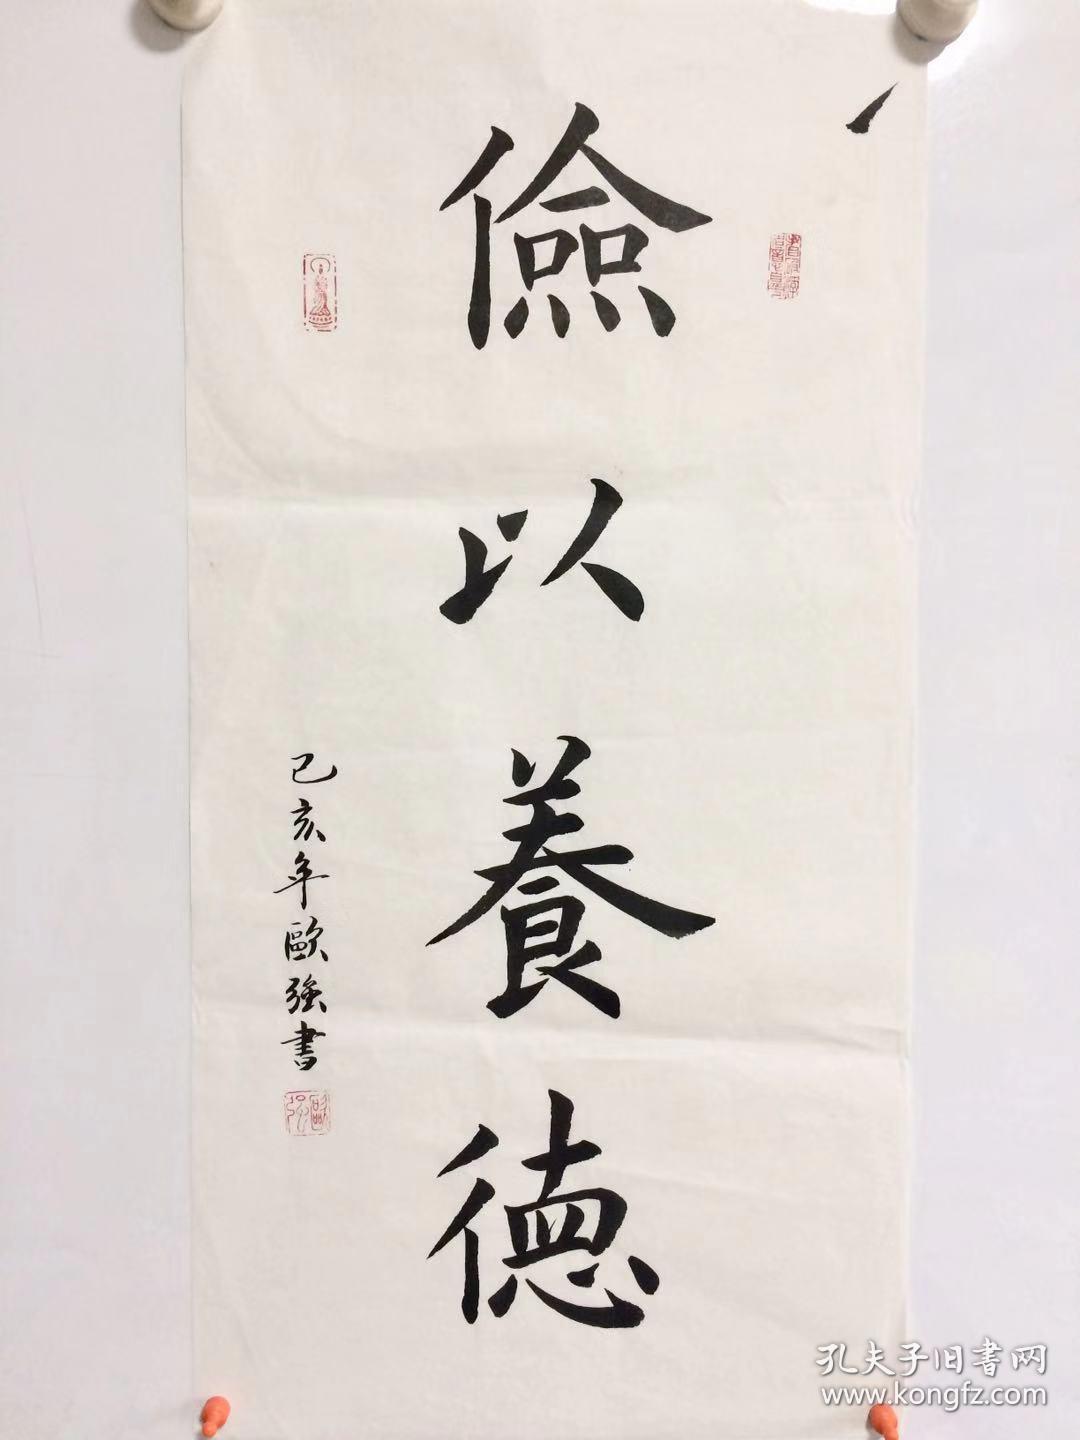 儉以養德
己亥年歐強書
孔夫子旧書网
www.kongfz.com